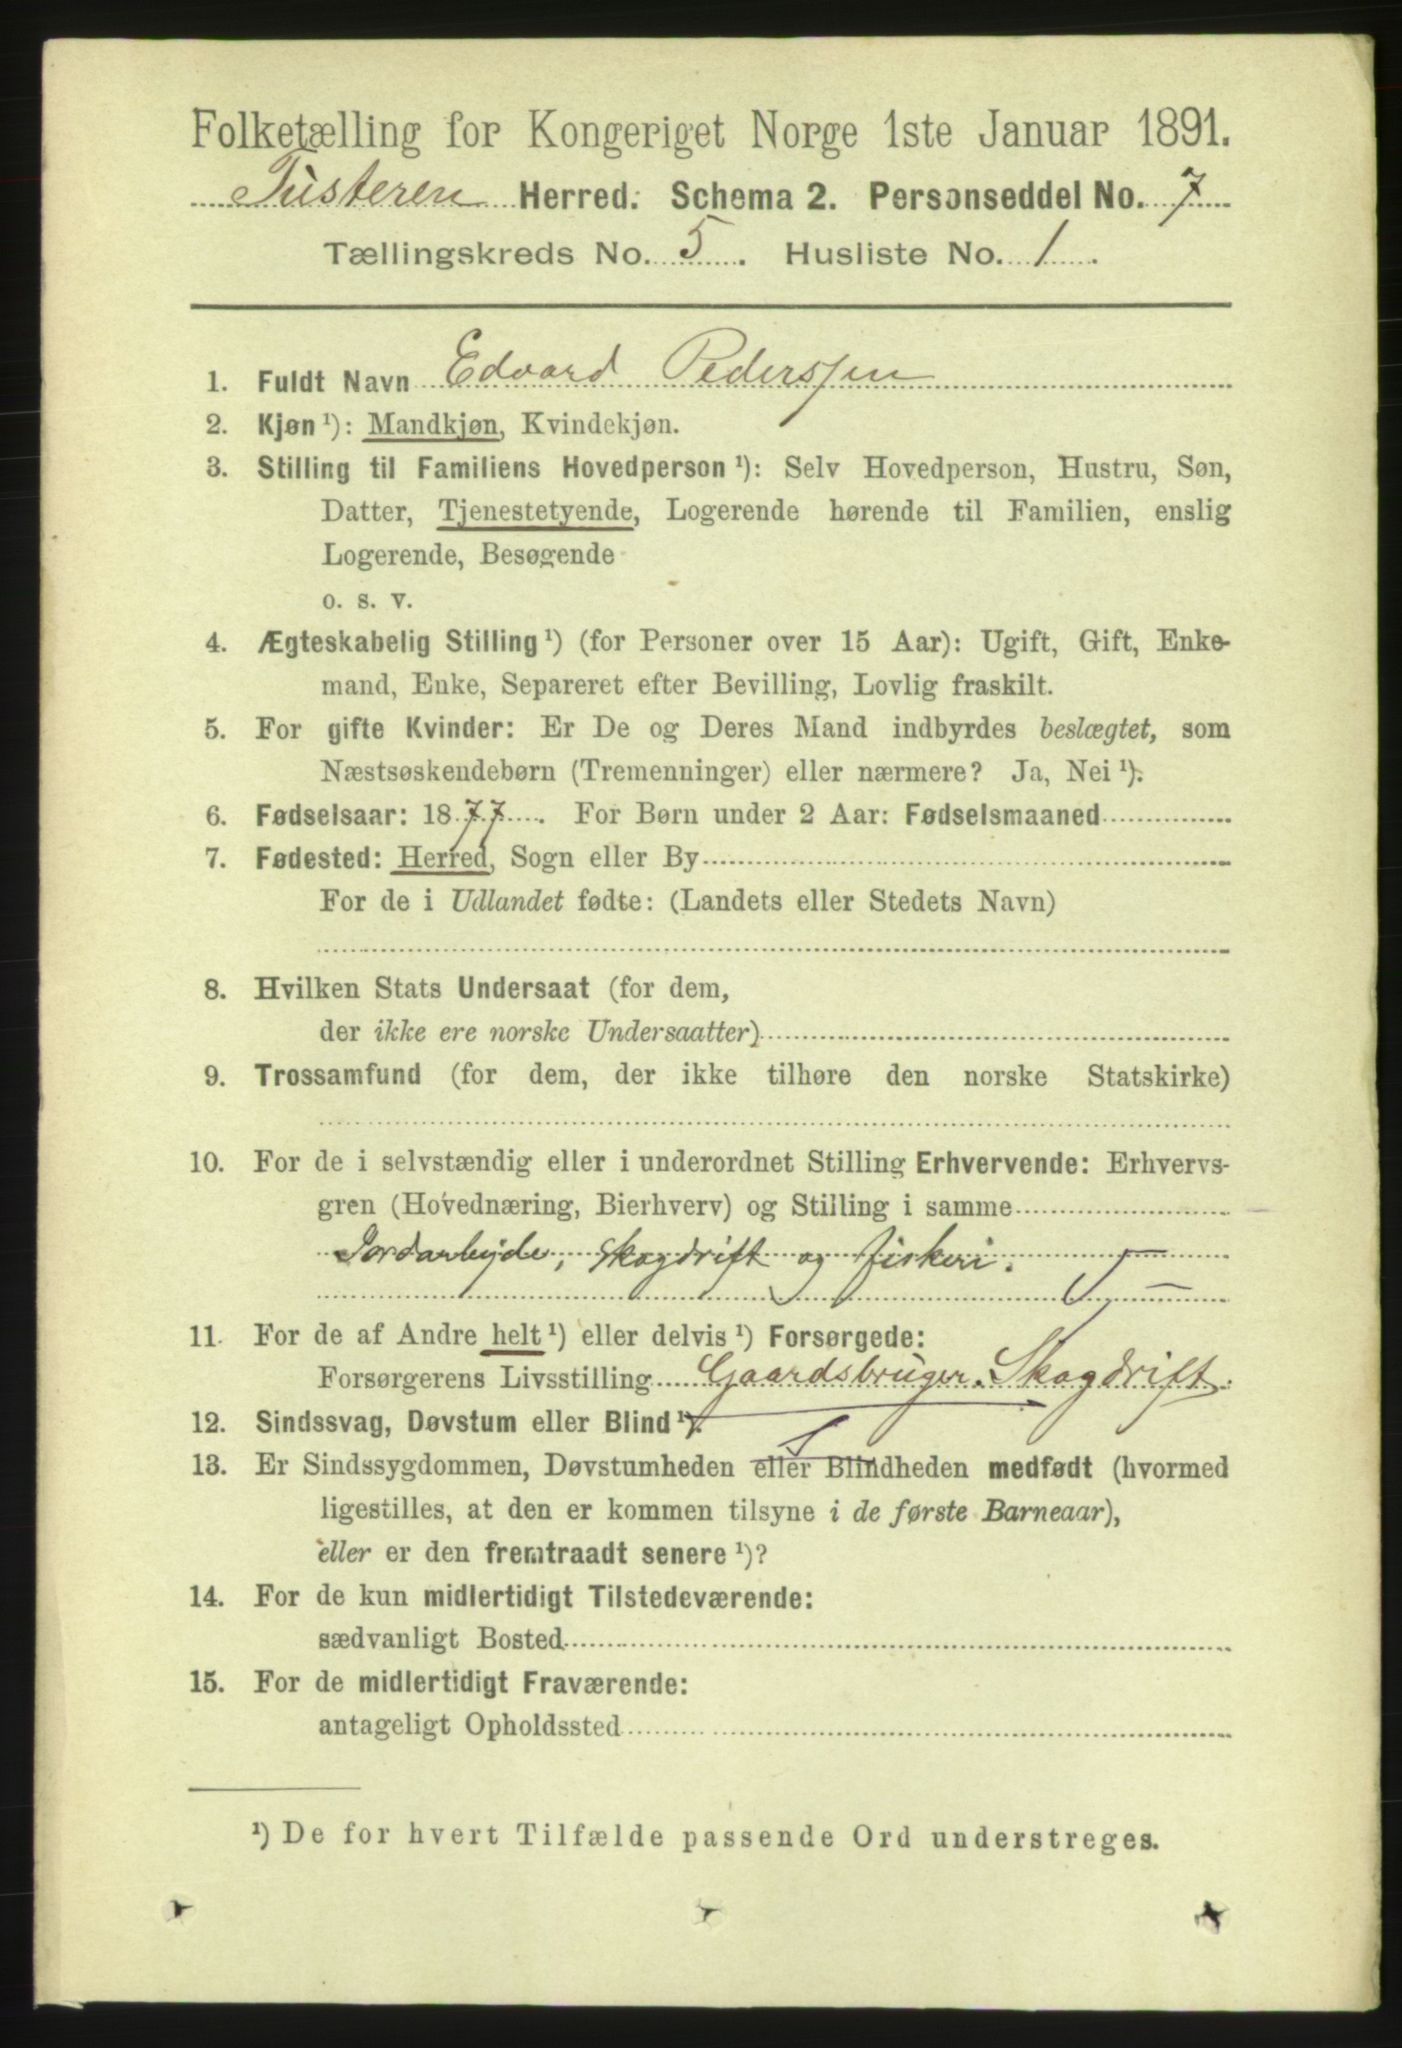 Folketælling for Kongeriget Norge 1ste Januar 1891.
Tusteren Herred. Schema 2. Personseddel No. 7
Tællingskreds No. 5. Husliste No. 1.
1. Fuldt Navn Edvard Pederssen
2. Kjøn ¹): Mandkjøn, Kvindekjøn.
3. Stilling til Familiens Hovedperson ¹): Selv Hovedperson, Hustru, Søn,
Datter, Tjenestetyende, Logerende hørende til Familien, enslig
Logerende, Besøgende
o. s. v.
4. Ægteskabelig Stilling ¹) (for Personer over 15 Aar): Ugift, Gift, Enke-
mand, Enke, Separeret efter Bevilling, Lovlig fraskilt.
5. For gifte Kvinder: Er De og Deres Mand indbyrdes beslægtet, som
Næstsøskendebørn (Tremenninger) eller nærmere? Ja, Nei ¹).
6. Fødselsaar: 1877. For Børn under 2 Aar: Fødselsmaaned
7. Fødested: Herred, Sogn eller By
For de i Udlandet fødte: (Landets eller Stedets Navn)
8. Hvilken Stats Undersaat (for dem,
der ikke ere norske Undersaatter)
9. Trossamfund (for dem, der ikke tilhøre den norske Statskirke)
10. For de i selvstændig eller i underordnet Stilling Erhvervende: Erhvervs-
gren (Hovednæring, Bierhverv) og Stilling i samme
Jordarbejde, Skogdrift og fiskeri.
11. For de af Andre helt ¹) eller delvis ¹) Forsørgede:
Forsørgerens Livsstilling Gaardsbruger. Skogdrift.
12. Sindssvag, Døvstum eller Blind ¹).
13. Er Sindssygdommen, Døvstumheden eller Blindheden medfødt (hvormed
ligestilles, at den er kommen tilsyne i de første Barneaar),
eller er den fremtraadt senere ¹)?
14. For de kun midlertidigt Tilstedeværende:
sædvanligt Bosted
15. For de midlertidigt Fraværende:
antageligt Opholdssted
¹) De for hvert Tilfælde passende Ord understreges.